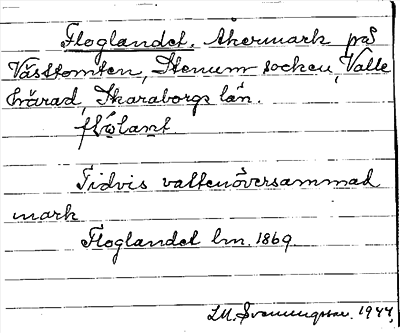 Floglandet. Åkermark på
Västtomten, Stenum socken, Valle
härad, Skaraborgs län.
Tidvis vattenöversammad
mark
Floglandet lm. 1869.
1944.